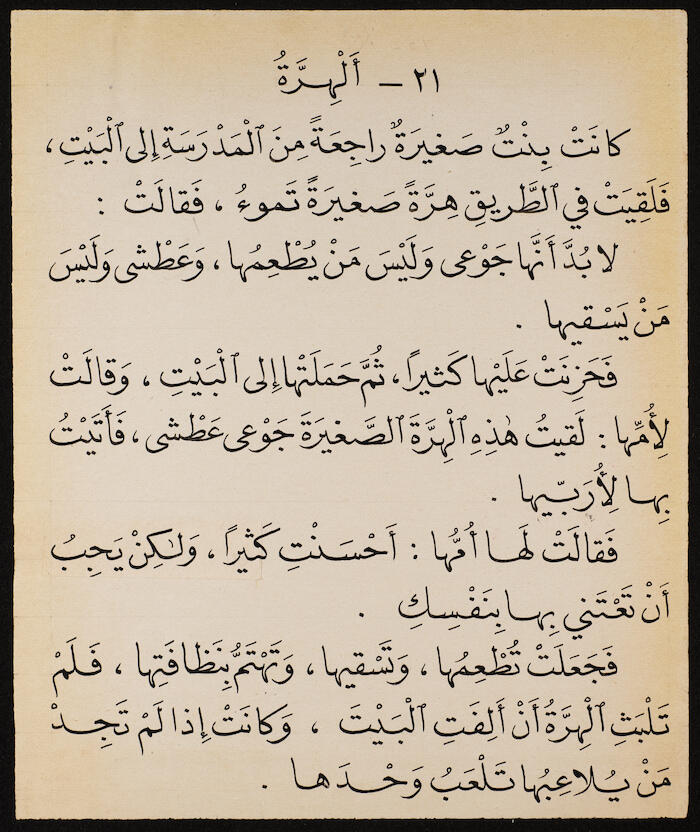 ٢١ – أَلْهِرَّةُ
كانَتْ بِنْتٌ صَغيرَةٌ راجِعَةً مِنَ ٱلْمَدْرَسَةِ إلى ٱلْبَيْتِ ،
فَلَقِيَتْ في ٱلطَّريقِ هِرَّةً صَغيرَةً تَموءُ ، فَقالَتْ :
لا بُدَّ أَنَّها جَوْعى وَلَيْسَ مَنْ يُطْعِمُها ، وَعَطْشى وَلَيْسَ
مَنْ يَسْقيها .
فَحَزِنَتْ عَلَيْها كَثيرًا ، ثُمَّ حَمَلَتْها إلى ٱلْبَيْتِ ، وَقالَتْ
لِأُمِّها : لَقيتُ هٰذِهِ ٱلْهِرَّةَ ٱلصَّغيرَةَ جَوْعى عَطْشى ، فَأَتَيْتُ
بِها لِأُرَبّيها .
فَقالَتْ لَها أُمُّها : أَحْسَنْتِ كَثيرًا ، وَلٰكِنْ يَجِبُ
أَنْ تَعْتَني بِها بِنَفْسِكِ .
فَجَعَلَتْ تُطْعِمُها ، وَتَسْقيها ، وَتَهْتَمُّ بِنَظافَتِها ، فَلَمْ
تَلْبَثِ ٱلْهِرَّةُ أَنْ أَلِفَتِ ٱلْبَيْتَ ، وَكانَتْ إِذا لَمْ تَجِدْ
مَنْ يُلاعِبُها تَلْعَبُ وَحْدَها .